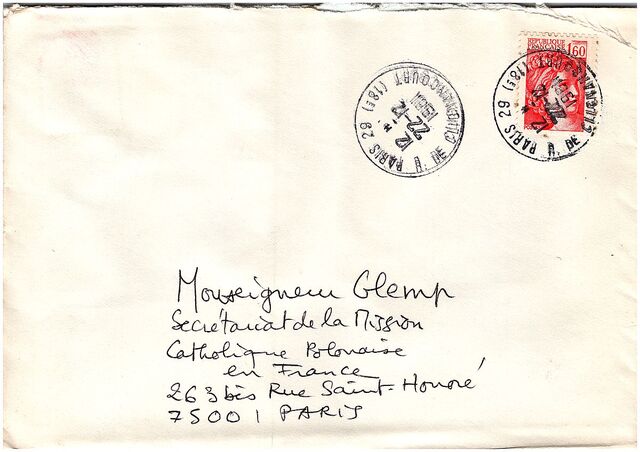 REPUBLIQUE
FRANCAISE
1,60
PARIS 29 (18e) R. DE CLIGNANCOURT
12 *
22-12
1981
PARIS 29 (18e) R. DE CLIGNANCOURT
12 *
22-12
1981
Monseigneur Glemp
Secrétariat de la Mission
Catholique Polonaise
en France
263 bis Rue Saint-Honoré
75001 PARIS